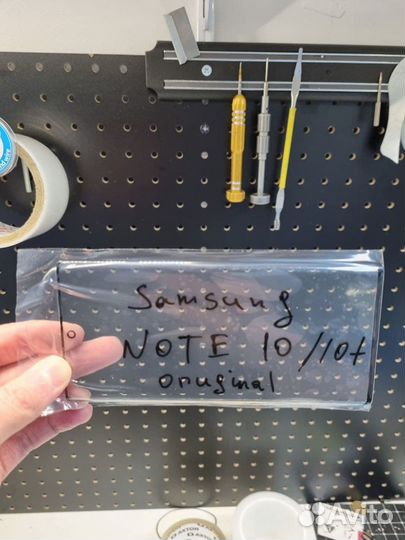 Samsung
NOTE 10/10+
oruginal
Avito